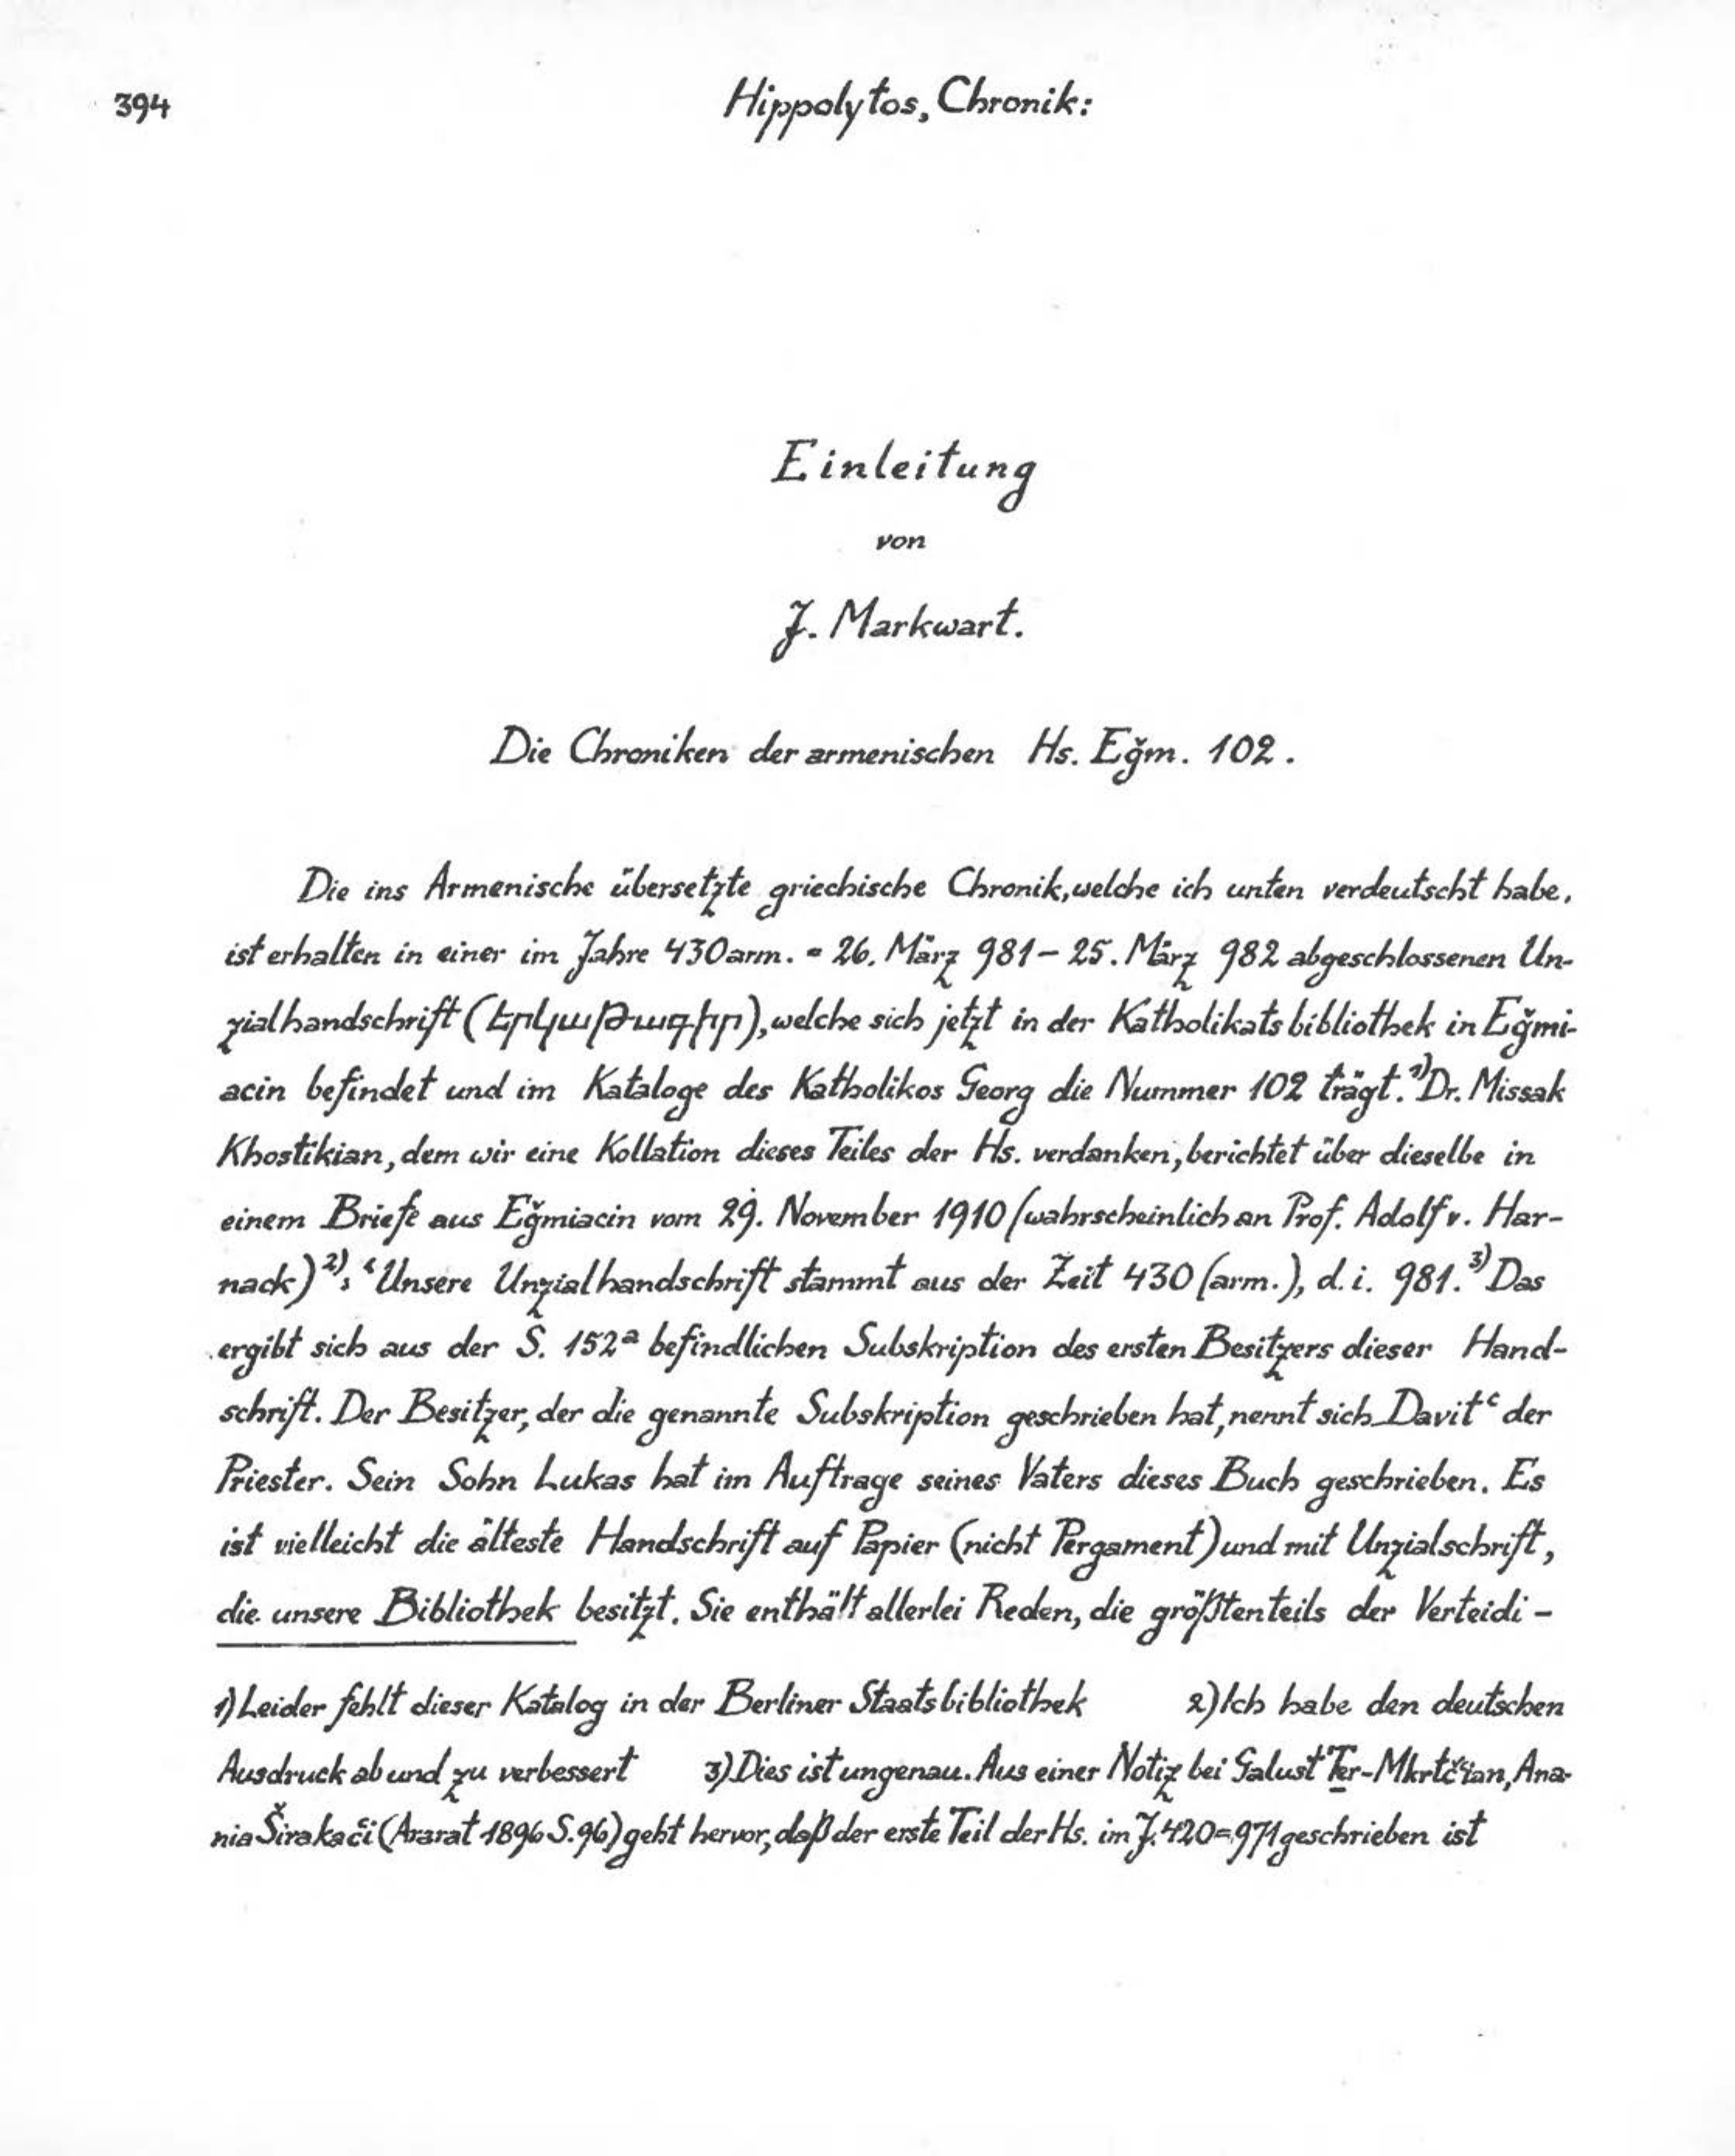 394
Hippolytos, Chronik:
Einleitung
von
J. Markwart.
Die Chroniken der armenischen Hs. Eǧm. 102.
Die ins Armenische übersetzte griechische Chronik, welche ich unten verdeutscht habe,
ist erhalten in einer im Jahre 430 arm. = 26. März 981 – 25. März 982 abgeschlossenen Un-
zialhandschrift (երկաթագիր), welche sich jetzt in der Katholikatsbibliothek in Eǧmi-
acin befindet und im Kataloge des Katholikos Georg die Nummer 102 trägt.1) Dr. Missak
Khostikian, dem wir eine Kollation dieses Teiles der Hs. verdanken, berichtet über dieselbe in
einem Briefe aus Eǧmiacin vom 29. November 1910 (wahrscheinlich an Prof. Adolf v. Har-
nack)2): ‘Unsere Unzialhandschrift stammt aus der Zeit 430 (arm.), d. i. 981.3) Das
ergibt sich aus der S. 152a befindlichen Subskription des ersten Besitzers dieser Hand-
schrift. Der Besitzer, der die genannte Subskription geschrieben hat, nennt sich Davitʿ der
Priester. Sein Sohn Lukas hat im Auftrage seines Vaters dieses Buch geschrieben. Es
ist vielleicht die älteste Handschrift auf Papier (nicht Pergament) und mit Unzialschrift,
die unsere Bibliothek besitzt. Sie enthält allerlei Reden, die größtenteils der Verteidi-
1) Leider fehlt dieser Katalog in der Berliner Staatsbibliothek 2) Ich habe den deutschen
Ausdruck ab und zu verbessert 3) Dies ist ungenau. Aus einer Notiz bei Galust Ter-Mkrtčʿian, Ana-
nia Širakac̣i (Ararat 1896 S. 96) geht hervor, daß der erste Teil der Hs. im J. 420 = 971 geschrieben ist